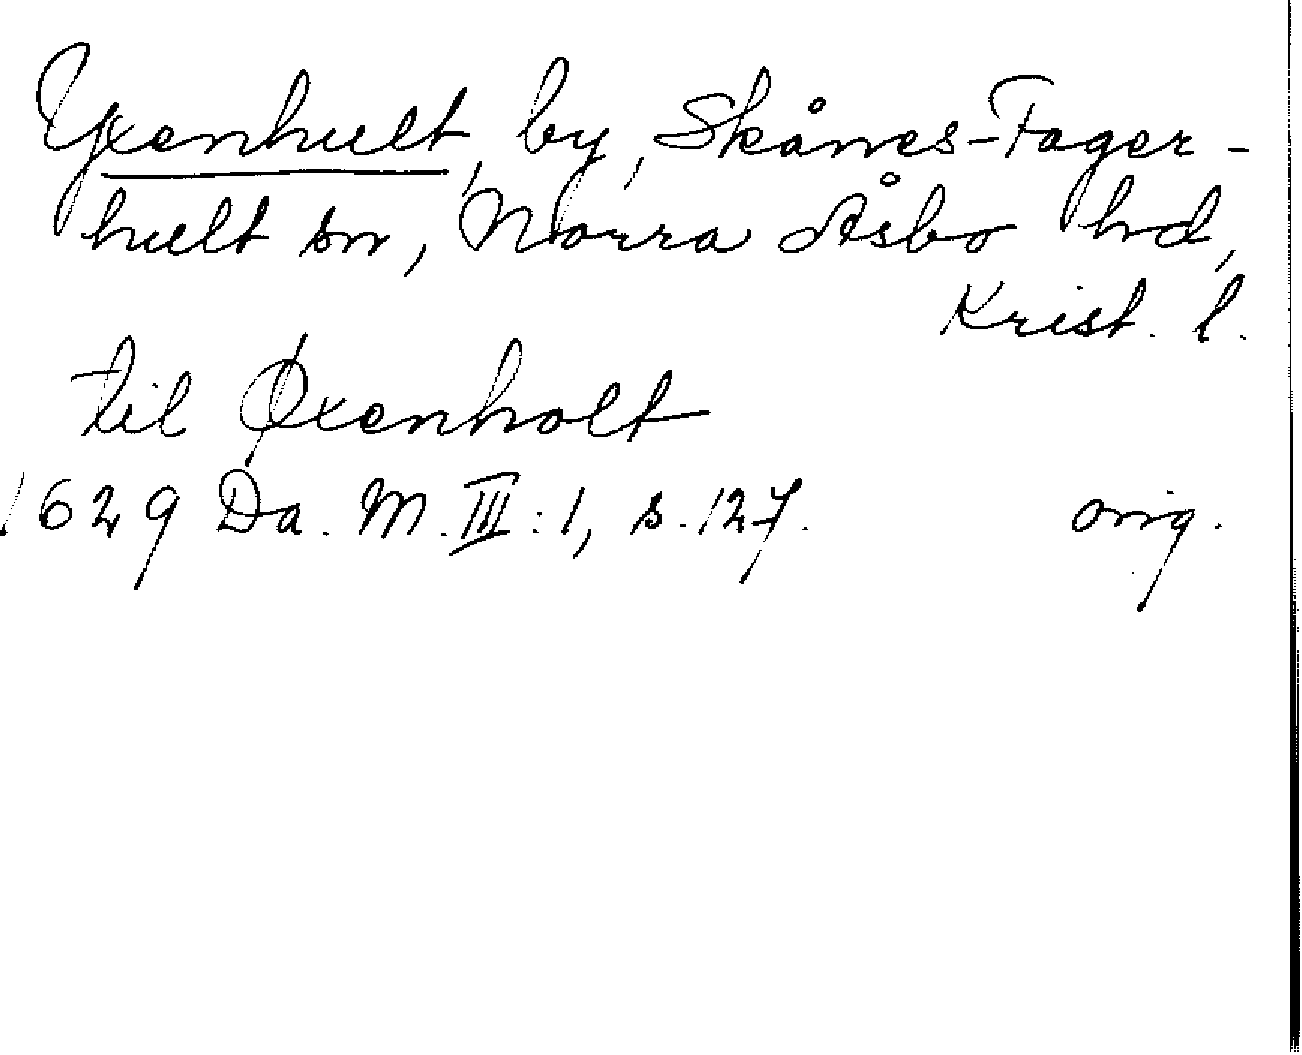 Yxenhult, by, Skånes-Fager-
hult sn, Norra Åsbo hd,
Krist. l.
til Øxenholt
1629 Da. M. III:1, s. 127. orig.